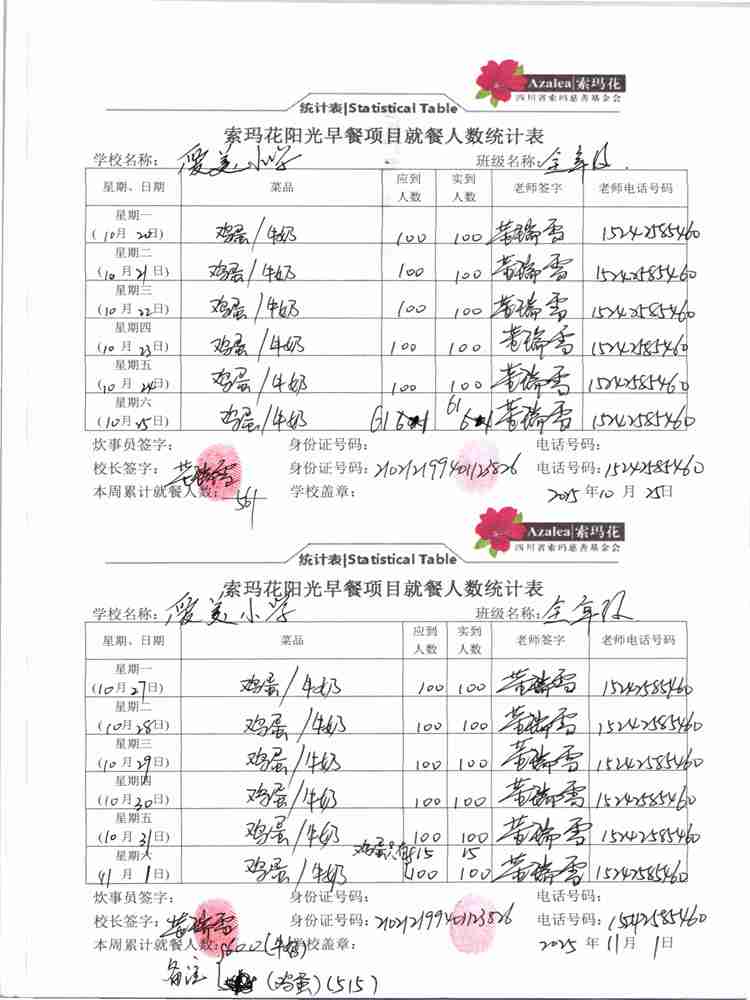 Azalea 索玛花
四川省索玛慈善基金会
统计表|Statistical Table
索玛花阳光早餐项目就餐人数统计表
学校名称: 爱美小学 班级名称: 全年级
星期、日期 菜品 应到人数 实到人数 老师签字 老师电话号码
星期一 (10月20日) 鸡蛋/牛奶 100 100 苦瑞雪 15242585460
星期二 (10月21日) 鸡蛋/牛奶 100 100 苦瑞雪 15242585460
星期三 (10月22日) 鸡蛋/牛奶 100 100 苦瑞雪 15242585460
星期四 (10月23日) 鸡蛋/牛奶 100 100 苦瑞雪 15242585460
星期五 (10月24日) 鸡蛋/牛奶 100 100 苦瑞雪 15242585460
星期六 (10月25日) 鸡蛋/牛奶 61 61 苦瑞雪 15242585460
炊事员签字: 身份证号码: 电话号码:
校长签字: 苦瑞雪 身份证号码: 210212199401123826 电话号码: 15242585460
本周累计就餐人数: 561 学校盖章: 2025年10月25日
Azalea 索玛花
四川省索玛慈善基金会
统计表|Statistical Table
索玛花阳光早餐项目就餐人数统计表
学校名称: 爱美小学 班级名称: 全年级
星期、日期 菜品 应到人数 实到人数 老师签字 老师电话号码
星期一 (10月27日) 鸡蛋/牛奶 100 100 苦瑞雪 15242585460
星期二 (10月28日) 鸡蛋/牛奶 100 100 苦瑞雪 15242585460
星期三 (10月29日) 鸡蛋/牛奶 100 100 苦瑞雪 15242585460
星期四 (10月30日) 鸡蛋/牛奶 100 100 苦瑞雪 15242585460
星期五 (10月31日) 鸡蛋/牛奶 100 100 苦瑞雪 15242585460
鸡蛋只有15 15
星期六 (11月1日) 鸡蛋/牛奶 100 100 苦瑞雪 15242585460
炊事员签字: 身份证号码: 电话号码:
校长签字: 苦瑞雪 身份证号码: 210212199401123826 电话号码: 15242585460
本周累计就餐人数: 600 (牛奶) 学校盖章: 2025年11月1日
备注 (鸡蛋)(515)